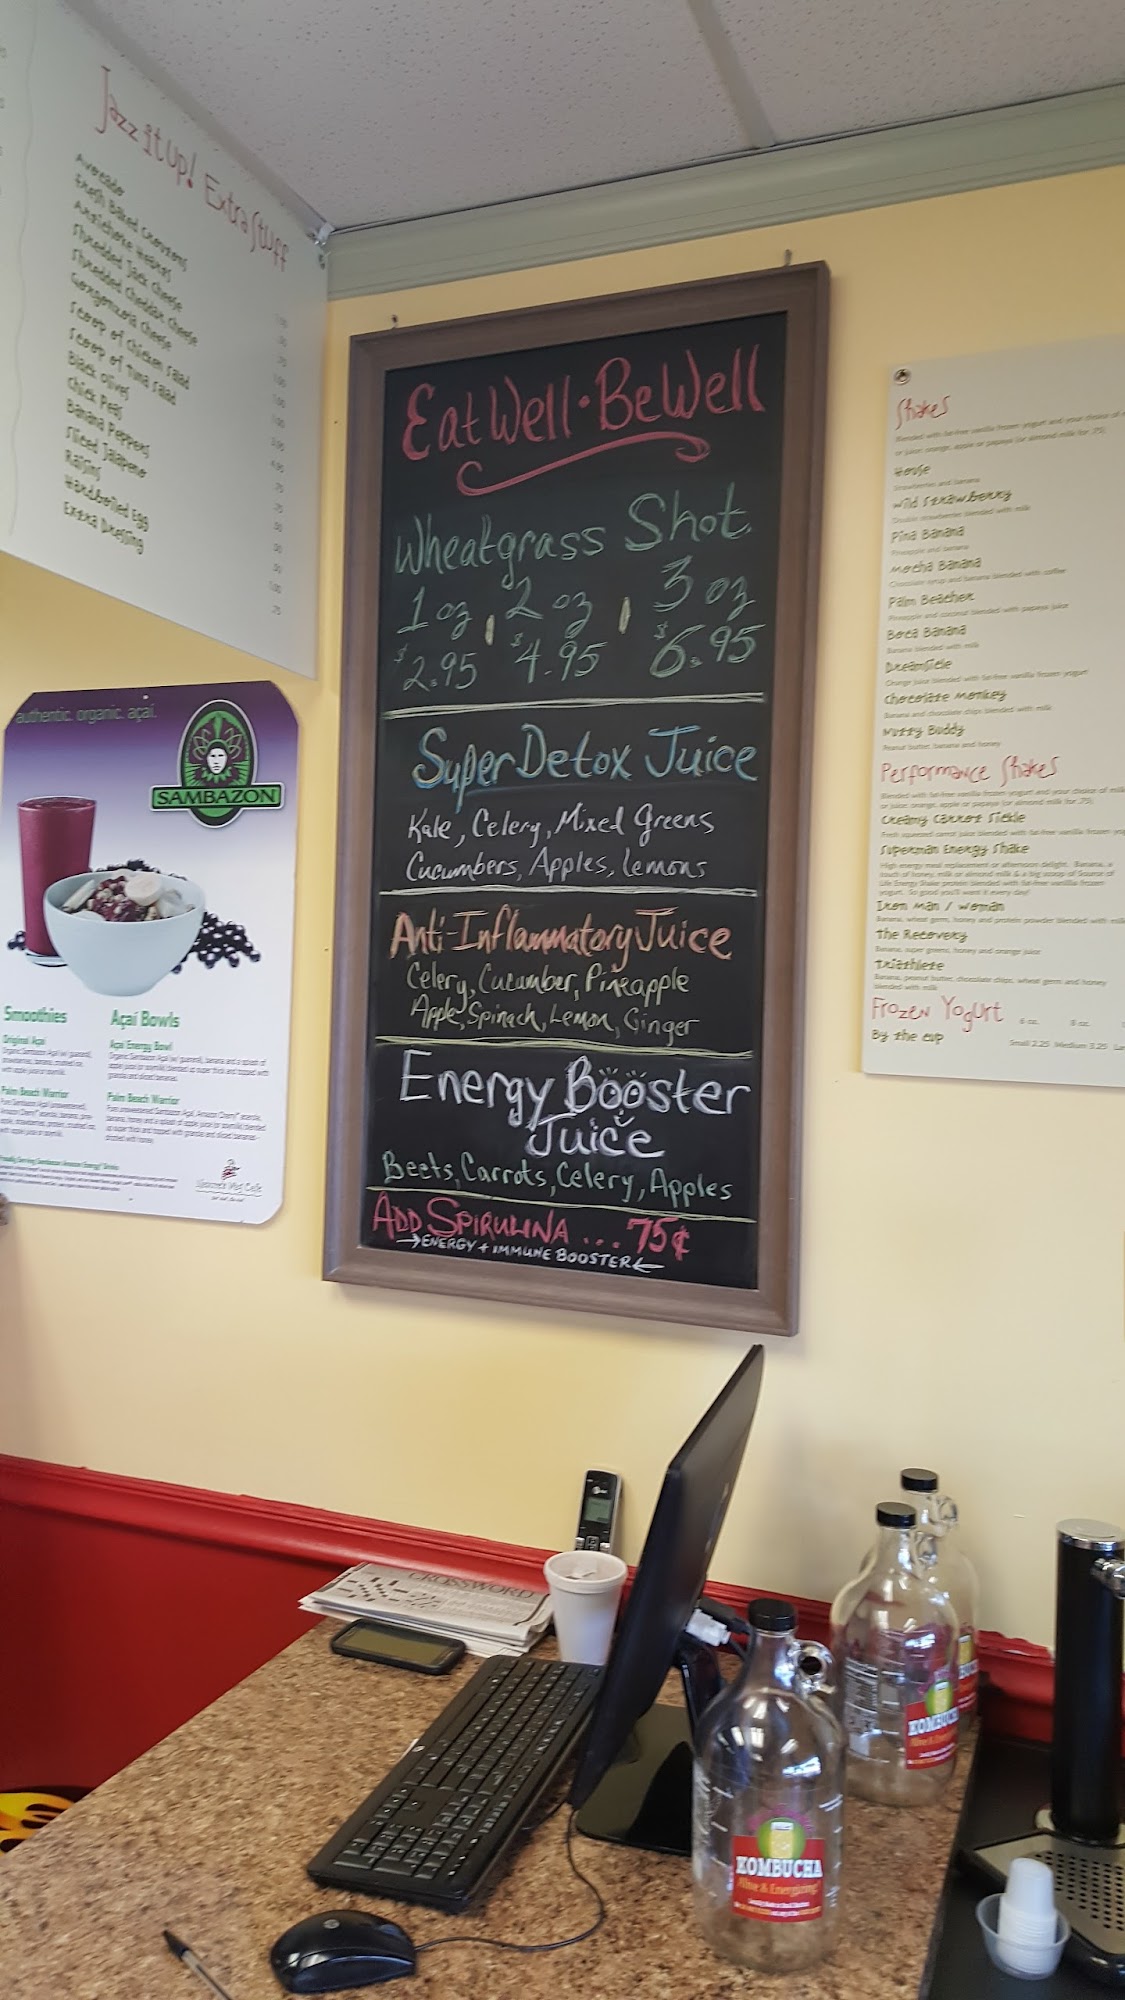 Jazz it up! Extra Stuff
Avocado
Fresh Baked Croutons
Artichoke Hearts
Shredded Jack Cheese
Shredded Cheddar Cheese
Gorgonzola Cheese
Scoop of Chicken Salad
Scoop of Tuna Salad
Black Olives
Chick Peas
Banana Peppers
Sliced Jalapeno
Raisins
Hardboiled Egg
Extra Dressing
Eat Well • Be Well
Wheatgrass Shot
1 oz, 2 oz, 3 oz
$2.95 $4.95 $6.95
Super Detox Juice
Kale, Celery, Mixed Greens
Cucumbers, Apples, Lemons
Anti-Inflammatory Juice
Celery, Cucumber, Pineapple
Apple, Spinach, Lemon, Ginger
Energy Booster
Juice
Beets, Carrots, Celery, Apples
ADD SPIRULINA ... 75¢
→ENERGY + IMMUNE BOOSTER←
authentic. organic. açaí.
SAMBAZON
Smoothies
Original Açaí
Palm Beach Warrior
Açaí Bowls
Açaí Energy Bowl
Palm Beach Warrior
Shakes
Blended with fat-free vanilla frozen yogurt and your choice of
or juice: orange, apple or papaya (or almond milk for .75)
House
Strawberries and banana
Wild Strawberry
Double strawberries blended with milk
Pina Banana
Pineapple and banana
Mocha Banana
Chocolate syrup and banana blended with coffee
Palm Beacher
Pineapple and coconut blended with papaya juice
Boca Banana
Banana blended with milk
Dreamsicle
Orange juice blended with fat-free vanilla frozen yogurt
Chocolate Monkey
Banana and chocolate chips blended with milk
Nutty Buddy
Peanut butter, banana and honey
Performance Shakes
Blended with fat-free vanilla frozen yogurt and your choice of milk
or juice: orange, apple or papaya (or almond milk for .75)
Creamy Carrot Sickle
Fresh squeezed carrot juice blended with fat-free vanilla frozen
Superman Energy Shake
High energy meal replacement or afternoon delight. Banana, a
touch of honey, milk or almond milk & a big scoop of Source of
Life Energy Shake protein blended with fat-free vanilla frozen
yogurt. So good you'll want it every day!
Iron Man / Woman
Banana, wheat germ, honey and protein powder blended with milk
The Recovery
Banana, super greens, honey and orange juice
Triathlete
Banana, peanut butter, chocolate chips, wheat germ and honey
blended with milk
Frozen Yogurt
6 oz. 8 oz.
By the cup
Small 2.25 Medium 3.25
CROSSWORD
KOMBUCHA
Alive & Energizing
KOMBUCHA